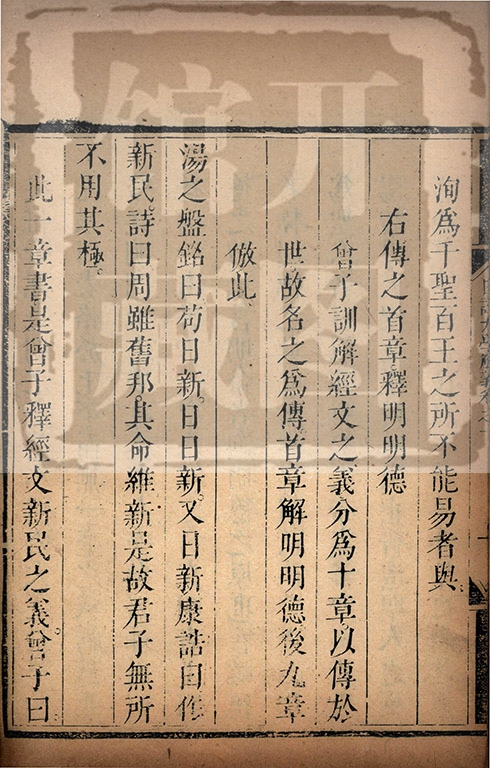 洵爲千聖百王之所不能易者與
右傳之首章釋明明德
曾子訓解經文之義分爲十章以傳於
世故名之爲傳首章解明明德後九章
倣此
湯之盤銘曰苟日新日日新又日新康誥曰作
新民詩曰周雖舊邦其命維新是故君子無所
不用其極
此一章書是曾子釋經文新民之義曾子曰